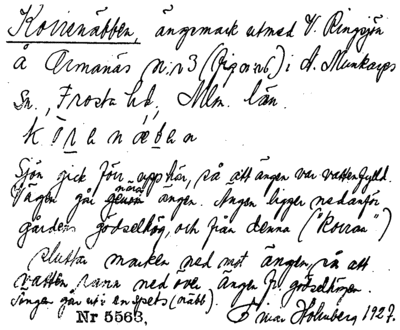 Korrenäbben, ängsmark utmed V. Ringsjön
å Ormanäs n:r 3 i A. Munkarps
Sn., Frosta hd, Mlm. län.
kǫranæban
Sjön gick förr upp här, så att ängen var vattenfylld.
Vägen går nära ängen. Ängen ligger nedanför
gårdens gödselhög, och från denna ("korran")
sluttar marken ned mot ängen, så att
vatten rann ned över ängen fr. gödselhögen.
Ängen går ut i en spets (näbb).
Nr 5563. Einar Holmberg 1927.